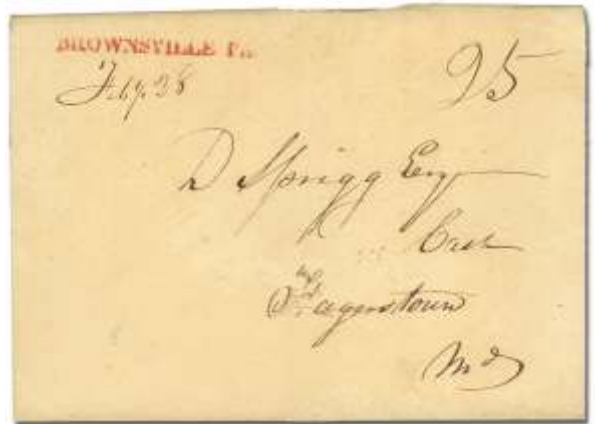 BROWNSVILLE Pa.
25
Feby. 28
D Sprigg Esq
Cash
Hagerstown
Md